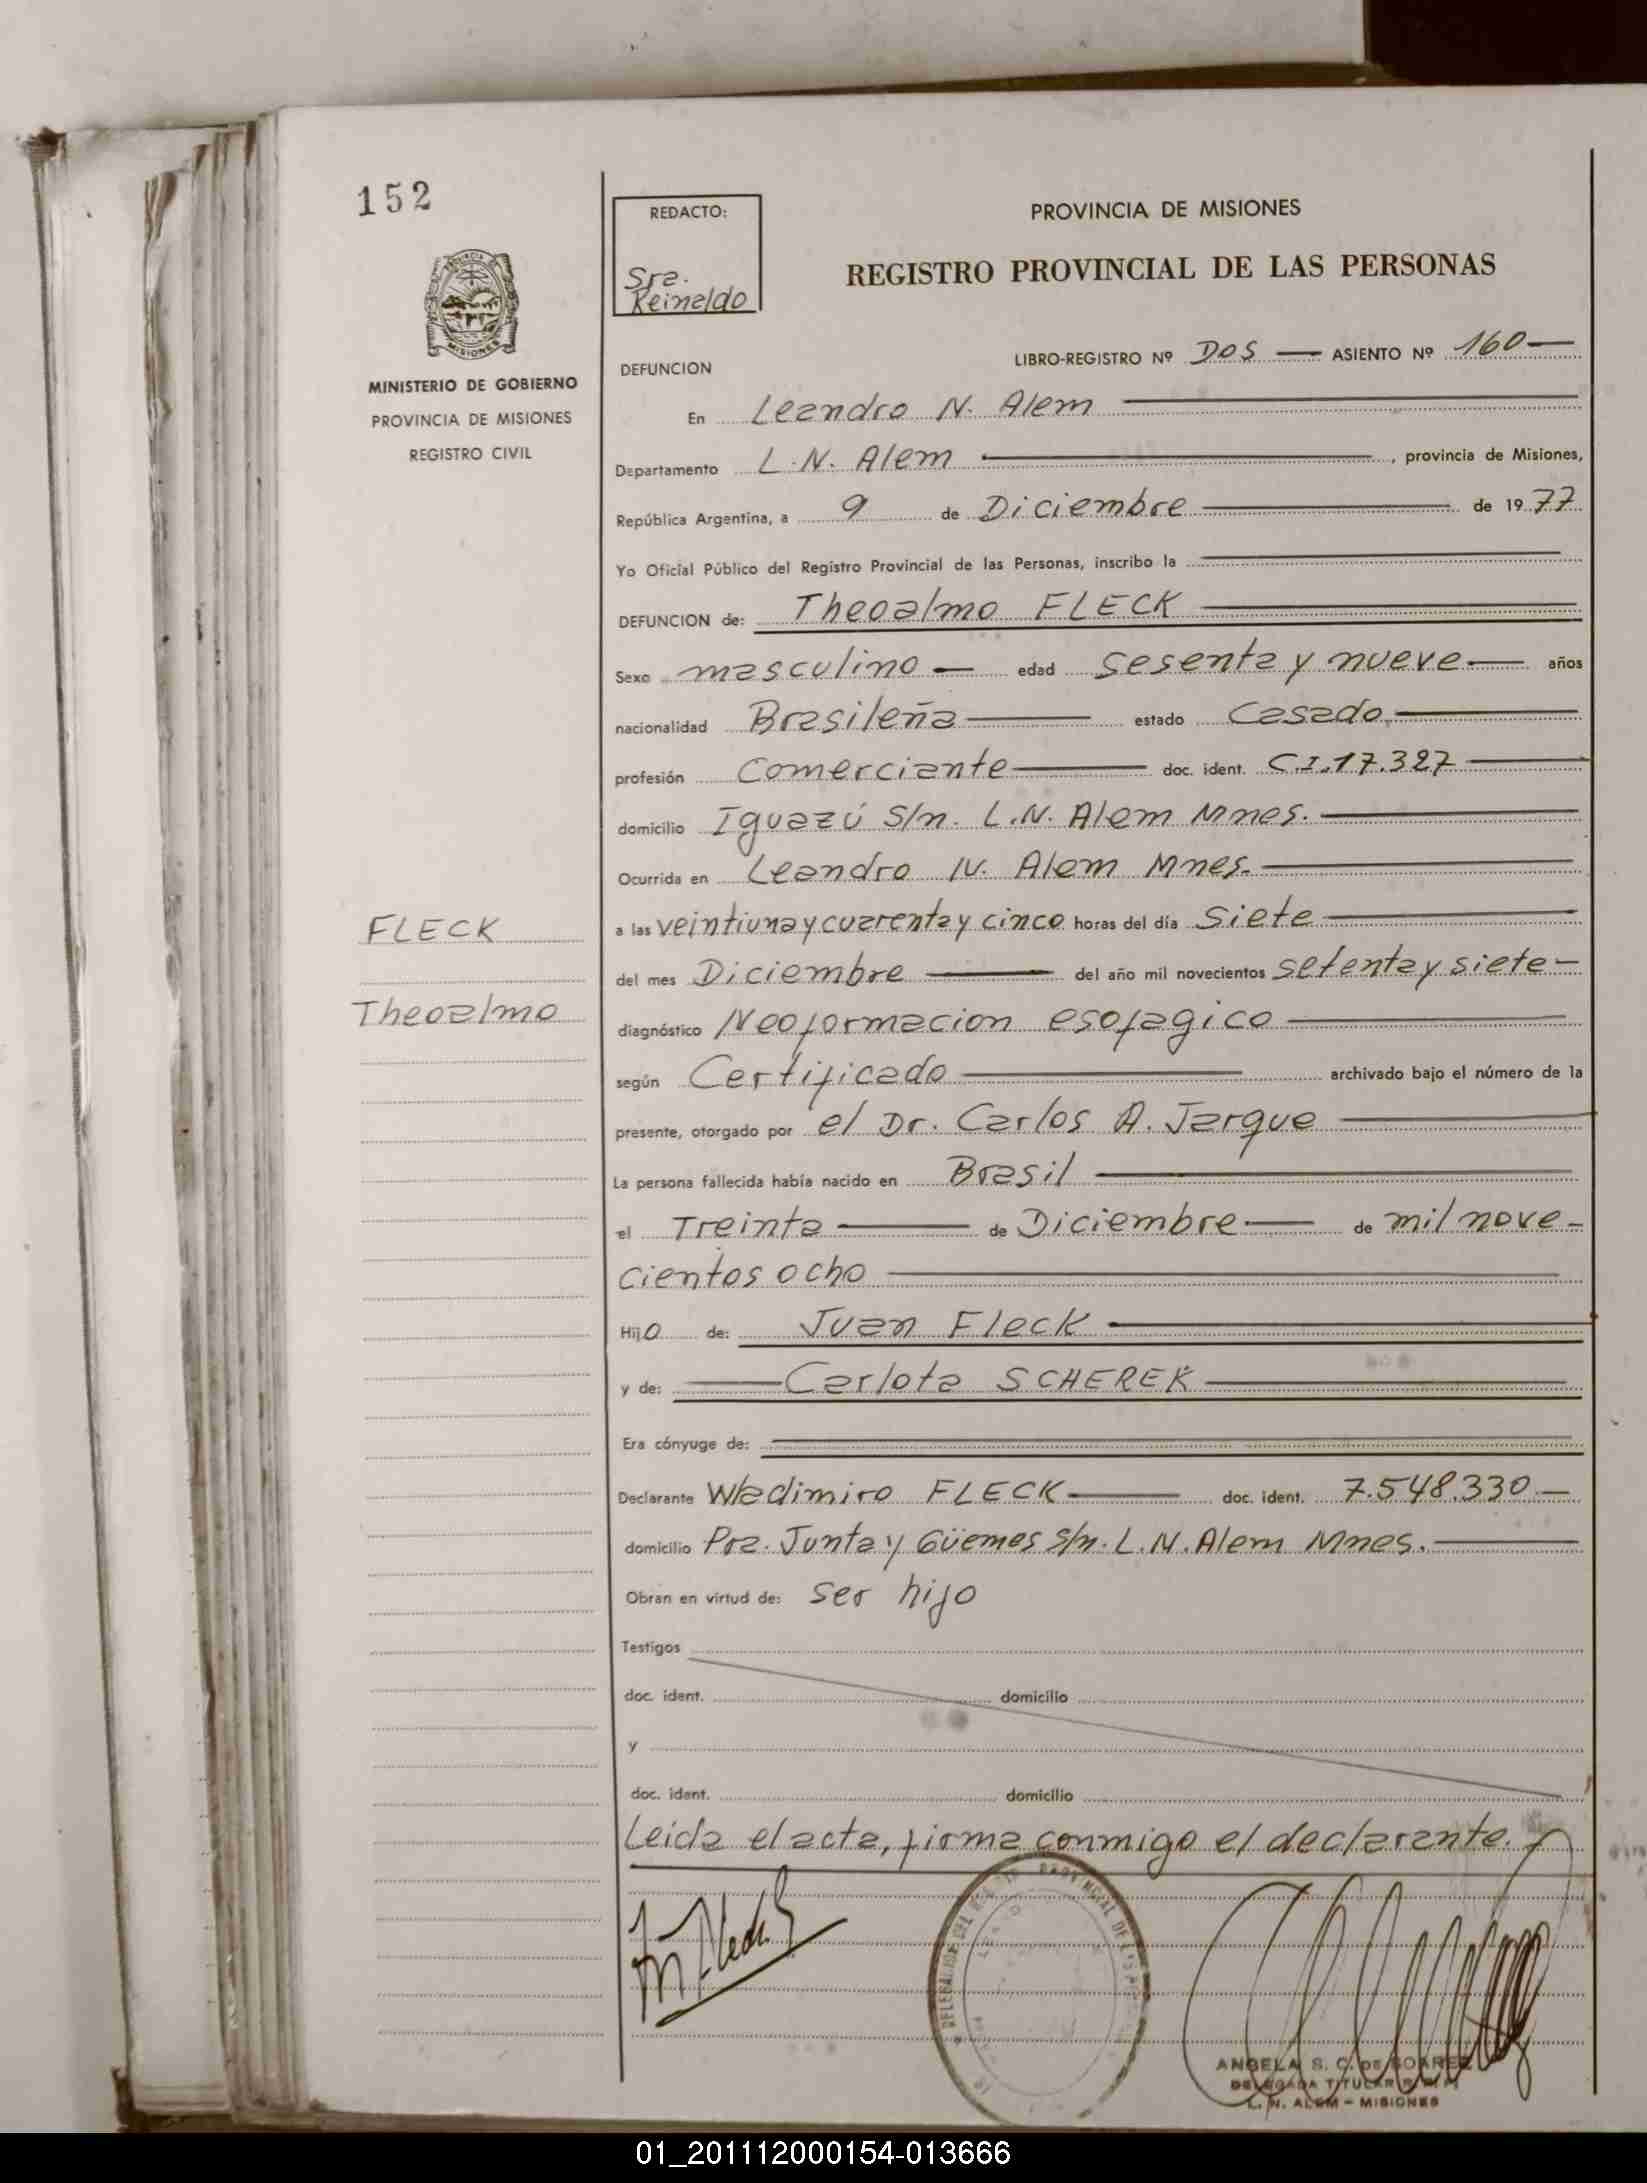 152
MINISTERIO DE GOBIERNO
PROVINCIA DE MISIONES
REGISTRO CIVIL
FLECK
Theoalmo
REDACTO:
Sra.
Reinaldo
PROVINCIA DE MISIONES
REGISTRO PROVINCIAL DE LAS PERSONAS
LIBRO-REGISTRO Nº DOS — ASIENTO Nº 160 —
DEFUNCION
En Leandro N. Alem
Departamento L.N. Alem , provincia de Misiones,
República Argentina, a 9 de Diciembre de 1977
Yo Oficial Público del Registro Provincial de las Personas, inscribo la
DEFUNCION de: Theoalmo FLECK
Sexo masculino — edad sesenta y nueve — años
nacionalidad Brasileña — estado Casado
profesión Comerciante — doc. ident. C.I.17.327
domicilio Iguazú S/n. L.N. Alem Mnes.
Ocurrida en Leandro N. Alem Mnes.
a las veintiuna y cuarenta y cinco horas del día siete
del mes Diciembre — del año mil novecientos setenta y siete —
diagnóstico Neoformacion esofagico
según Certificado — archivado bajo el número de la
presente, otorgado por el Dr. Carlos A. Jarque
La persona fallecida había nacido en Brasil
el Treinta — de Diciembre — de mil nove-
cientos ocho
Hijo de: Juan Fleck
y de: Carlota SCHEREK
Era cónyuge de:
Declarante Wladimiro FLECK — doc. ident. 7.548.330 —
domicilio Pra. Junta y Güemes s/n. L.N. Alem Mnes.
Obran en virtud de: ser hijo
Testigos
doc. ident. domicilio
y
doc. ident. domicilio
Leida el acta, firma conmigo el declarante.
ANGELA S. C. DE SOAREZ
DELEGADA TITULAR R.P.P.
L. N. ALEM - MISIONES
01_201112000154-013666